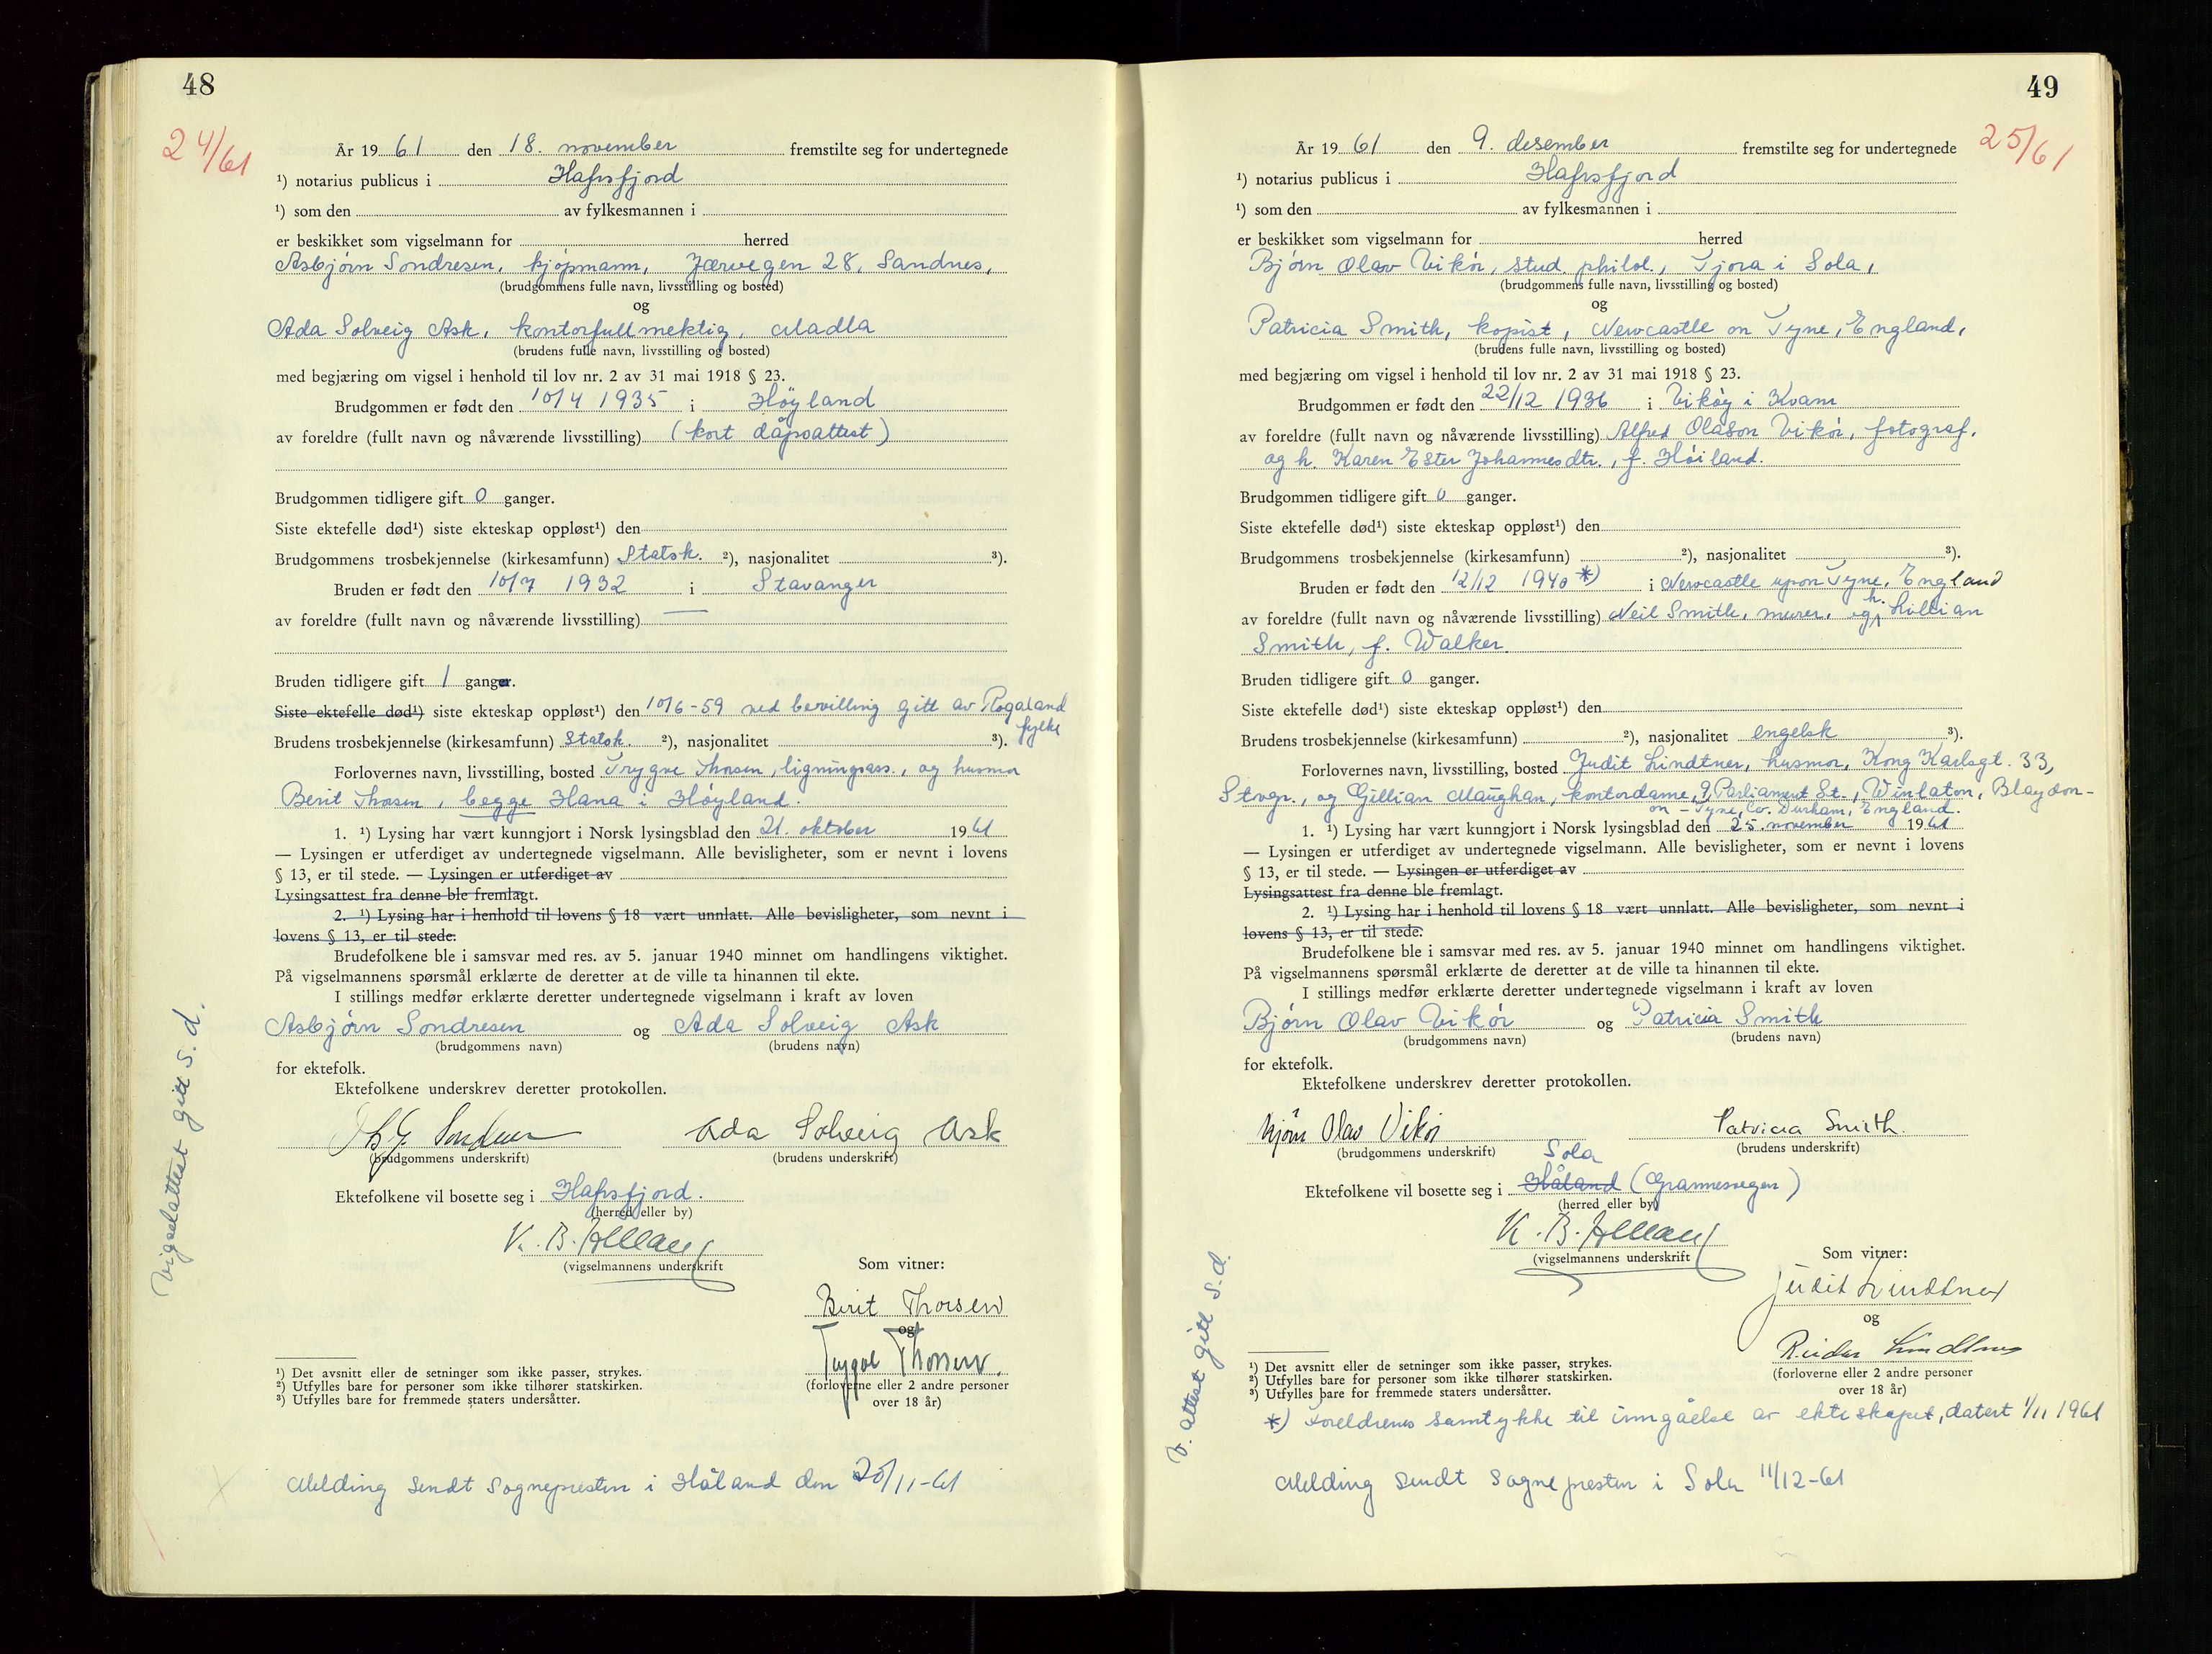 48
24/61
År 1961 den 18. november fremstilte seg for undertegnede
¹) notarius publicus i Hafrsfjord
¹) som den av fylkesmannen i
er beskikket som vigselmann for herred
Asbjørn Sondresen, kjøpmann, Jærvegen 28, Sandnes,
(brudgommens fulle navn, livsstilling og bosted)
og
Ada Solveig Ask, kontorfullmektig, Madla
(brudens fulle navn, livsstilling og bosted)
med begjæring om vigsel i henhold til lov nr. 2 av 31 mai 1918 § 23.
Brudgommen er født den 10/4 1935 i Høyland
av foreldre (fullt navn og nåværende livsstilling) (kort dåpsattest)
Brudgommen tidligere gift 0 ganger.
Siste ektefelle død¹) siste ekteskap oppløst¹) den
Brudgommens trosbekjennelse (kirkesamfunn) Statsk. ²), nasjonalitet ³).
Bruden er født den 10/7 1932 i Stavanger
av foreldre (fullt navn og nåværende livsstilling) —
Bruden tidligere gift 1 ganger.
Siste ektefelle død¹) siste ekteskap oppløst¹) den 10/6-59 ved bevilling gitt av Rogaland
fylke
Brudens trosbekjennelse (kirkesamfunn) Statsk. ²), nasjonalitet ³).
Forlovernes navn, livsstilling, bosted Trygve Thorsen, ligningsass., og husmor
Berit Thorsen, begge Hana i Høyland.
1. ¹) Lysing har vært kunngjort i Norsk lysingsblad den 21. oktober 1961
— Lysingen er utferdiget av undertegnede vigselmann. Alle bevisligheter, som er nevnt i lovens
§ 13, er til stede. — Lysingen er utferdiget av
Lysingsattest fra denne ble fremlagt.
2. ¹) Lysing har i henhold til lovens § 18 vært unnlatt. Alle bevisligheter, som nevnt i
lovens § 13, er til stede.
Brudefolkene ble i samsvar med res. av 5. januar 1940 minnet om handlingens viktighet.
På vigselmannens spørsmål erklærte de deretter at de ville ta hinannen til ekte.
I stillings medfør erklærte deretter undertegnede vigselmann i kraft av loven
Asbjørn Sondresen og Ada Solveig Ask
(brudgommens navn) (brudens navn)
for ektefolk.
Ektefolkene underskrev deretter protokollen.
Ada Solveig Ask
(brudgommens underskrift) (brudens underskrift)
Ektefolkene vil bosette seg i Hafrsfjord.
(herred eller by)
(vigselmannens underskrift
Som vitner:
Berit Thorsen
og
Trygve Thorsen.
(forloverne eller 2 andre personer
over 18 år)
¹) Det avsnitt eller de setninger som ikke passer, strykes.
²) Utfylles bare for personer som ikke tilhører statskirken.
³) Utfylles bare for fremmede staters undersåtter.
Melding sendt sognepresten i Håland den 20/11-61
Vigselattest gitt s. d.
49
25/61
År 1961 den 9. desember fremstilte seg for undertegnede
¹) notarius publicus i Hafrsfjord
¹) som den av fylkesmannen i
er beskikket som vigselmann for herred
Bjørn Olav Vikør, stud. philol., Tjora i Sola,
(brudgommens fulle navn, livsstilling og bosted)
og
Patricia Smith, kopist, Newcastle on Tyne, England,
(brudens fulle navn, livsstilling og bosted)
med begjæring om vigsel i henhold til lov nr. 2 av 31 mai 1918 § 23.
Brudgommen er født den 22/12 1936 i Vikøy i Kvam
av foreldre (fullt navn og nåværende livsstilling) Alfred Olason Vikør, fotograf,
og h. Karen Ester Johannesdtr., f. Höiland.
Brudgommen tidligere gift 0 ganger.
Siste ektefelle død¹) siste ekteskap oppløst¹) den
Brudgommens trosbekjennelse (kirkesamfunn) ²), nasjonalitet ³).
Bruden er født den 12/12 1940 *) i Newcastle upon Tyne, England
av foreldre (fullt navn og nåværende livsstilling) Neil Smith, murer, og h. Lillian
Smith, f. Walker.
Bruden tidligere gift 0 ganger.
Siste ektefelle død¹) siste ekteskap oppløst¹) den
Brudens trosbekjennelse (kirkesamfunn) ²), nasjonalitet engelsk ³).
Forlovernes navn, livsstilling, bosted Judit Lindtner, husmor, Kong Karlsgt. 33,
Stvgr., og Gillian Maughan, kontordame, 9, Parliament St., Winlaton, Blaydon-
on-Tyne, Co. Durham, England.
1. ¹) Lysing har vært kunngjort i Norsk lysingsblad den 25. november 1961
— Lysingen er utferdiget av undertegnede vigselmann. Alle bevisligheter, som er nevnt i lovens
§ 13, er til stede. — Lysingen er utferdiget av
Lysingsattest fra denne ble fremlagt.
2. ¹) Lysing har i henhold til lovens § 18 vært unnlatt. Alle bevisligheter, som nevnt i
lovens § 13, er til stede.
Brudefolkene ble i samsvar med res. av 5. januar 1940 minnet om handlingens viktighet.
På vigselmannens spørsmål erklærte de deretter at de ville ta hinannen til ekte.
I stillings medfør erklærte deretter undertegnede vigselmann i kraft av loven
Bjørn Olav Vikør og Patricia Smith
(brudgommens navn) (brudens navn)
for ektefolk.
Ektefolkene underskrev deretter protokollen.
Bjørn Olav Vikør Patricia Smith.
(brudgommens underskrift) (brudens underskrift)
Sola
Ektefolkene vil bosette seg i Håland (Grannesvegen)
(herred eller by)
(vigselmannens underskrift
Som vitner:
Judit Lindtner
og
Reidar Lindtner
(forloverne eller 2 andre personer
over 18 år)
¹) Det avsnitt eller de setninger som ikke passer, strykes.
²) Utfylles bare for personer som ikke tilhører statskirken.
³) Utfylles bare for fremmede staters undersåtter.
*) Foreldrenes samtykke til inngåelse av ekteskapet, datert 1/11 1961
Melding sendt sognepresten i Sola 11/12-61
V. attest gitt s. d.